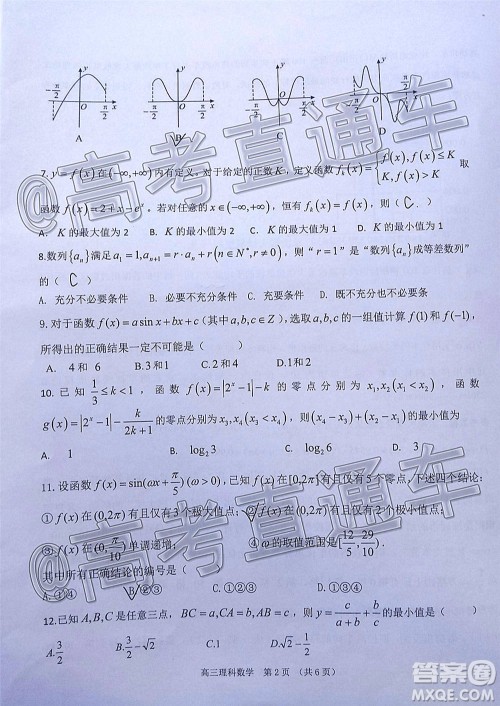 A
B
C
D
7. y = f(x)在(-∞,+∞)内有定义。对于给定的正数K,定义函数 f_K(x) = { f(x), f(x) ≤ K
K, f(x) > K
取
函数 f(x) = 2 + x - e^x。若对任意的 x ∈ (-∞,+∞),恒有 f_K(x) = f(x),则( C )
A. K的最大值为2 B. K的最小值为2 C. K的最大值为1 D. K的最小值为1
8.数列{a_n}满足 a_1 = 1, a_{n+1} = r·a_n + r(n∈N*, r≠0),则“r = 1”是“数列{a_n}成等差数列”
的( C )
A. 充分不必要条件 B. 必要不充分条件 C. 充要条件 D. 既不充分也不必要条件
9. 对于函数 f(x) = a sin x + bx + c(其中 a,b,c∈Z),选取 a,b,c的一组值计算 f(1)和 f(-1),
所得出的正确结果一定不可能是( )
A. 4和6 B.3和1 C.2和4 D.1和2
10. 已知 1/3 ≤ k < 1,函数 f(x) = |2^x - 1| - k 的零点分别为 x_1, x_2(x_1 < x_2),函数
g(x) = |2^x - 1| - k/(2k+1) 的零点分别为 x_3, x_4(x_3 < x_4),则 的最小值为
A. 1 B. log_2 3 C. D. 3
11. 设函数 f(x) = sin(ωx + π/5)(ω > 0),已知 f(x)在[0,2π]有且仅有5个零点,下述四个结论:
① f(x)在(0,2π)有且仅有3个极大值点;② f(x)在(0,2π)有且仅有2个极小值点;
③ f(x)在(0, )单调递增; ④ ω的取值范围是[12/5, 29/10).
其中所有正确结论的编号是( )
A.①④ B.②③ C.①②③ D.①③④
12.已知 A,B,C是任意三点,BC = a, CA = b, AB = c,则 y = c/(a+b) + b/c 的最小值是( )
A. 3/2 B. 3/2 - √2 C.1 D. √2 - 1/2
高三理科数学 第2页 (共6页)
@高考直通车
@高考直通车
答案圈
MXQE.COM